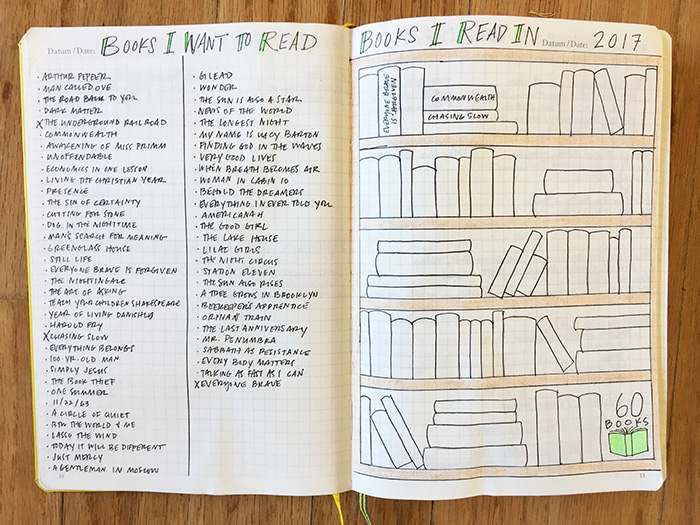 Datum/Date: BOOKS I WANT TO READ
· ARTHUR PEPPER
· MAN CALLED OVE
· THE ROAD BACK TO YOU
· DARK MATTER
X THE UNDERGROUND RAILROAD
· COMMONWEALTH
· AWAKENING OF MISS PRIMM
· UNOFFENDABLE
· ECONOMICS IN ONE LESSON
· LIVING THE CHRISTIAN YEAR
· PRESENCE
· THE SIN OF CERTAINTY
· CUTTING FOR STONE
· DOG IN THE NIGHTTIME
· MAN'S SEARCH FOR MEANING
· GREENGLASS HOUSE
· STILL LIFE
· EVERYONE BRAVE IS FORGIVEN
· THE NIGHTINGALE
· THE ART OF ASKING
· TEACH YOUR CHILDREN SHAKESPEARE
· YEAR OF LIVING DANISHLY
· HAROLD FRY
X CHASING SLOW
· EVERYTHING BELONGS
· 100-YR-OLD MAN
· SIMPLY JESUS
· THE BOOK THIEF
· ONE SUMMER
· 11/22/63
· A CIRCLE OF QUIET
· BTW THE WORLD & ME
· LASSO THE WIND
· TODAY IT WILL BE DIFFERENT
· JUST MERCY
· A GENTLEMAN IN MOSCOW
· GILEAD
· WONDER
· THE SUN IS ALSO A STAR
· NEWS OF THE WORLD
· THE LONGEST NIGHT
· MY NAME IS LUCY BARTON
· FINDING GOD IN THE WAVES
· VERY GOOD LIVES
· WHEN BREATH BECOMES AIR
· WOMAN IN CABIN 10
· BEHOLD THE DREAMERS
· EVERYTHING I NEVER TOLD YOU
· AMERICANAH
· THE GOOD GIRL
· THE LAKE HOUSE
· LILAC GIRLS
· THE NIGHT CIRCUS
· STATION ELEVEN
· THE SUN ALSO RISES
· A TREE GROWS IN BROOKLYN
· BEEKEEPER'S APPRENTICE
· ORPHAN TRAIN
· THE LAST ANNIVERSARY
· MR. PENUMBRA
· SABBATH AS RESISTANCE
· EVERY BODY MATTERS
· TALKING AS FAST AS I CAN
X EVERYONE BRAVE
10
BOOKS I READ IN Datum/Date: 2017
EVERYONE BRAVE
IS FORGIVEN
COMMONWEALTH
CHASING SLOW
60
BOOKS
11